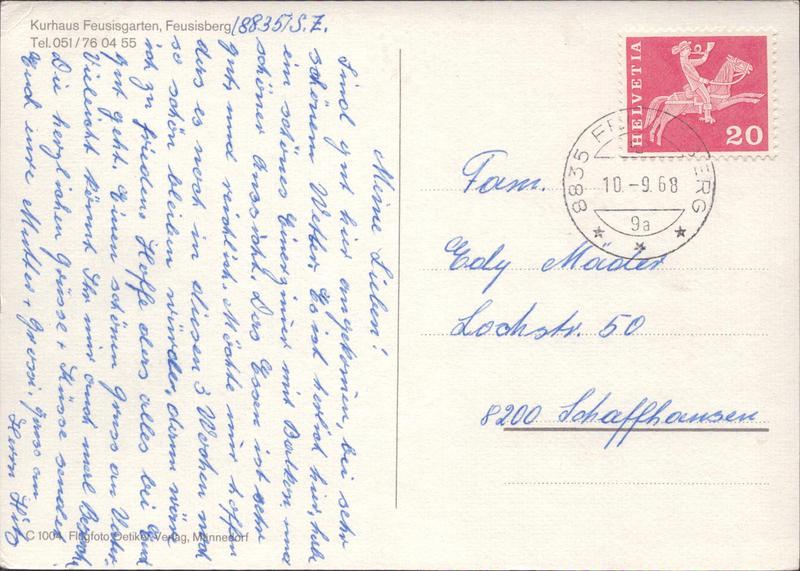 Kurhaus Feusisgarten, Feusisberg /8835/S.Z.
Tel. 051/76 04 55
Meine Lieben!
Sind gut hier angekommen, bei sehr
schönem Wetter. Es ist herrlich hier, habe
ein schönes Einerzimmer mit Balkon und
schöner Aussicht. Das Essen ist sehr
gut, und reichlich. Möchte nur hoffen
dass es noch in diesen 3 Wochen noch
so schön bleiben würde, dann wäre
ich zufrieden. Hoffe dass alles bei Euch
gut geht. Einen schönen Gruss an Vater.
Vielleicht kommt Ihr mir auch mal Besuch.
Die herzlichen Grüsse + Küsse sendet
Euch eure Mutter + Grossi, Gruss an
Herrn
C 1004 Flugfoto, Oetiker, Verlag, Männedorf
HELVETIA
20
8835 FEUSISBERG
10.-9.68
9a
Fam.
Edy Mäder
Lochstr. 50
8200 Schaffhausen